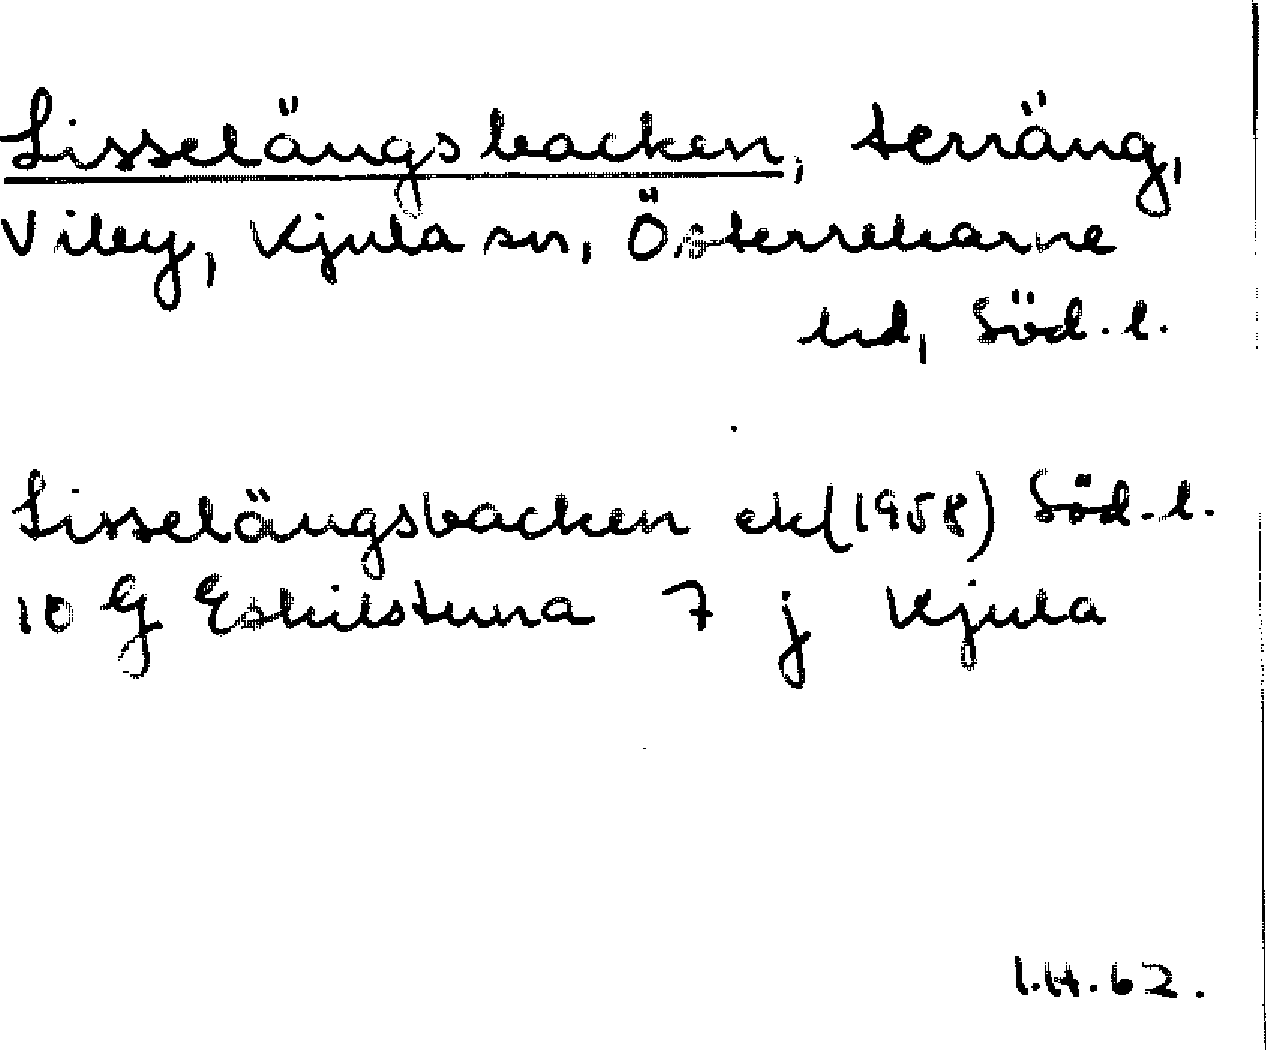 Lisselängsbacken, terräng,
Viby, Kjula sn, Österrekarne
hd, Söd.l.
Lisselängsbacken ek(1958) Söd.l.
10 G Eskilstuna 7 j Kjula
I.H.62.